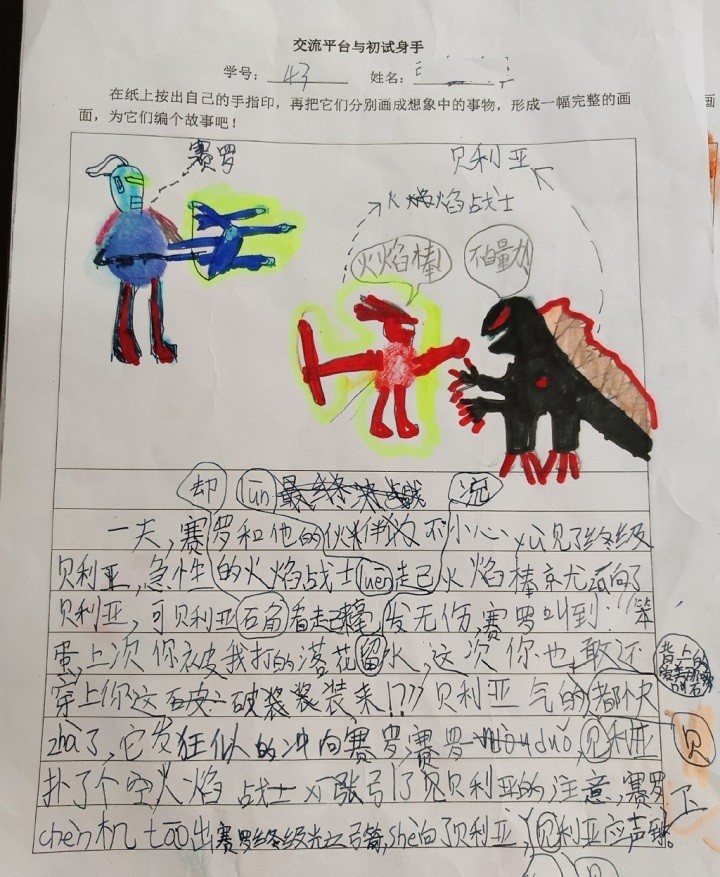 交流平台与初试身手
学号： 43 姓名：
在纸上按出自己的手指印，再把它们分别画成想象中的事物，形成一幅完整的画
面，为它们编个故事吧！
赛罗
贝利亚
火焰战士
火焰棒
不自量力
却 lūn 况
一天，赛罗和他的伙伴 不小心 yù见了终级
贝利亚，急性的火焰战士 lūn 走己火焰棒 向了
贝利亚，可贝利亚 看走己 发无伤，赛罗叫到：笨
蛋上次你被我打的落花留水，这次你也敢还
背上的
穿上你这 破 装来!??贝利亚气的都快
zhà了，它发狂似的冲向赛罗，赛罗一 duǒ，贝利亚
贝
扑了个空火焰战士 引了 贝利亚的注意，赛罗
chèn机 tāo出赛罗终级光之弓箭，shè向了贝利亚，贝利亚应声到。